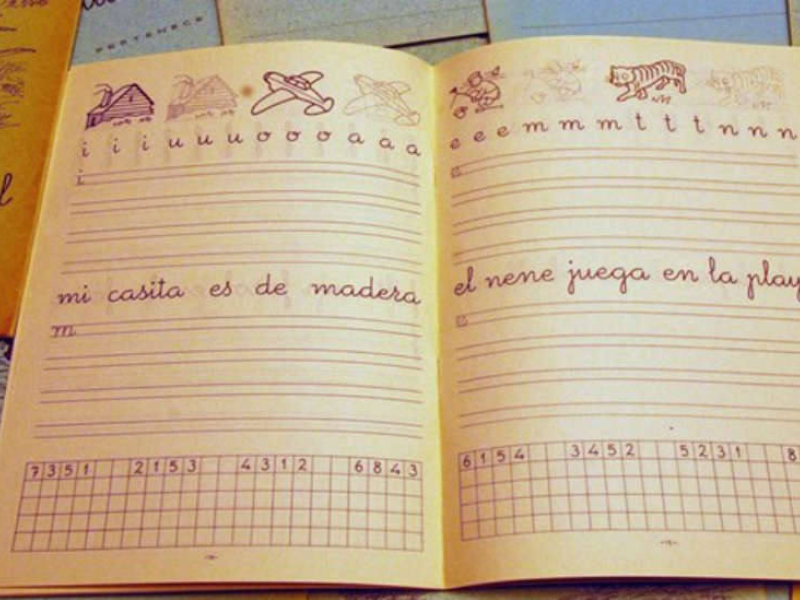 PERTENECE
i i i u u u o o o a a a
i
mi casita es de madera
m
7 3 5 1 2 1 5 3 4 3 1 2 6 8 4 3
e e e m m m t t t n n n
e
el nene juega en la play
e
6 1 5 4 3 4 5 2 5 2 3 1 8